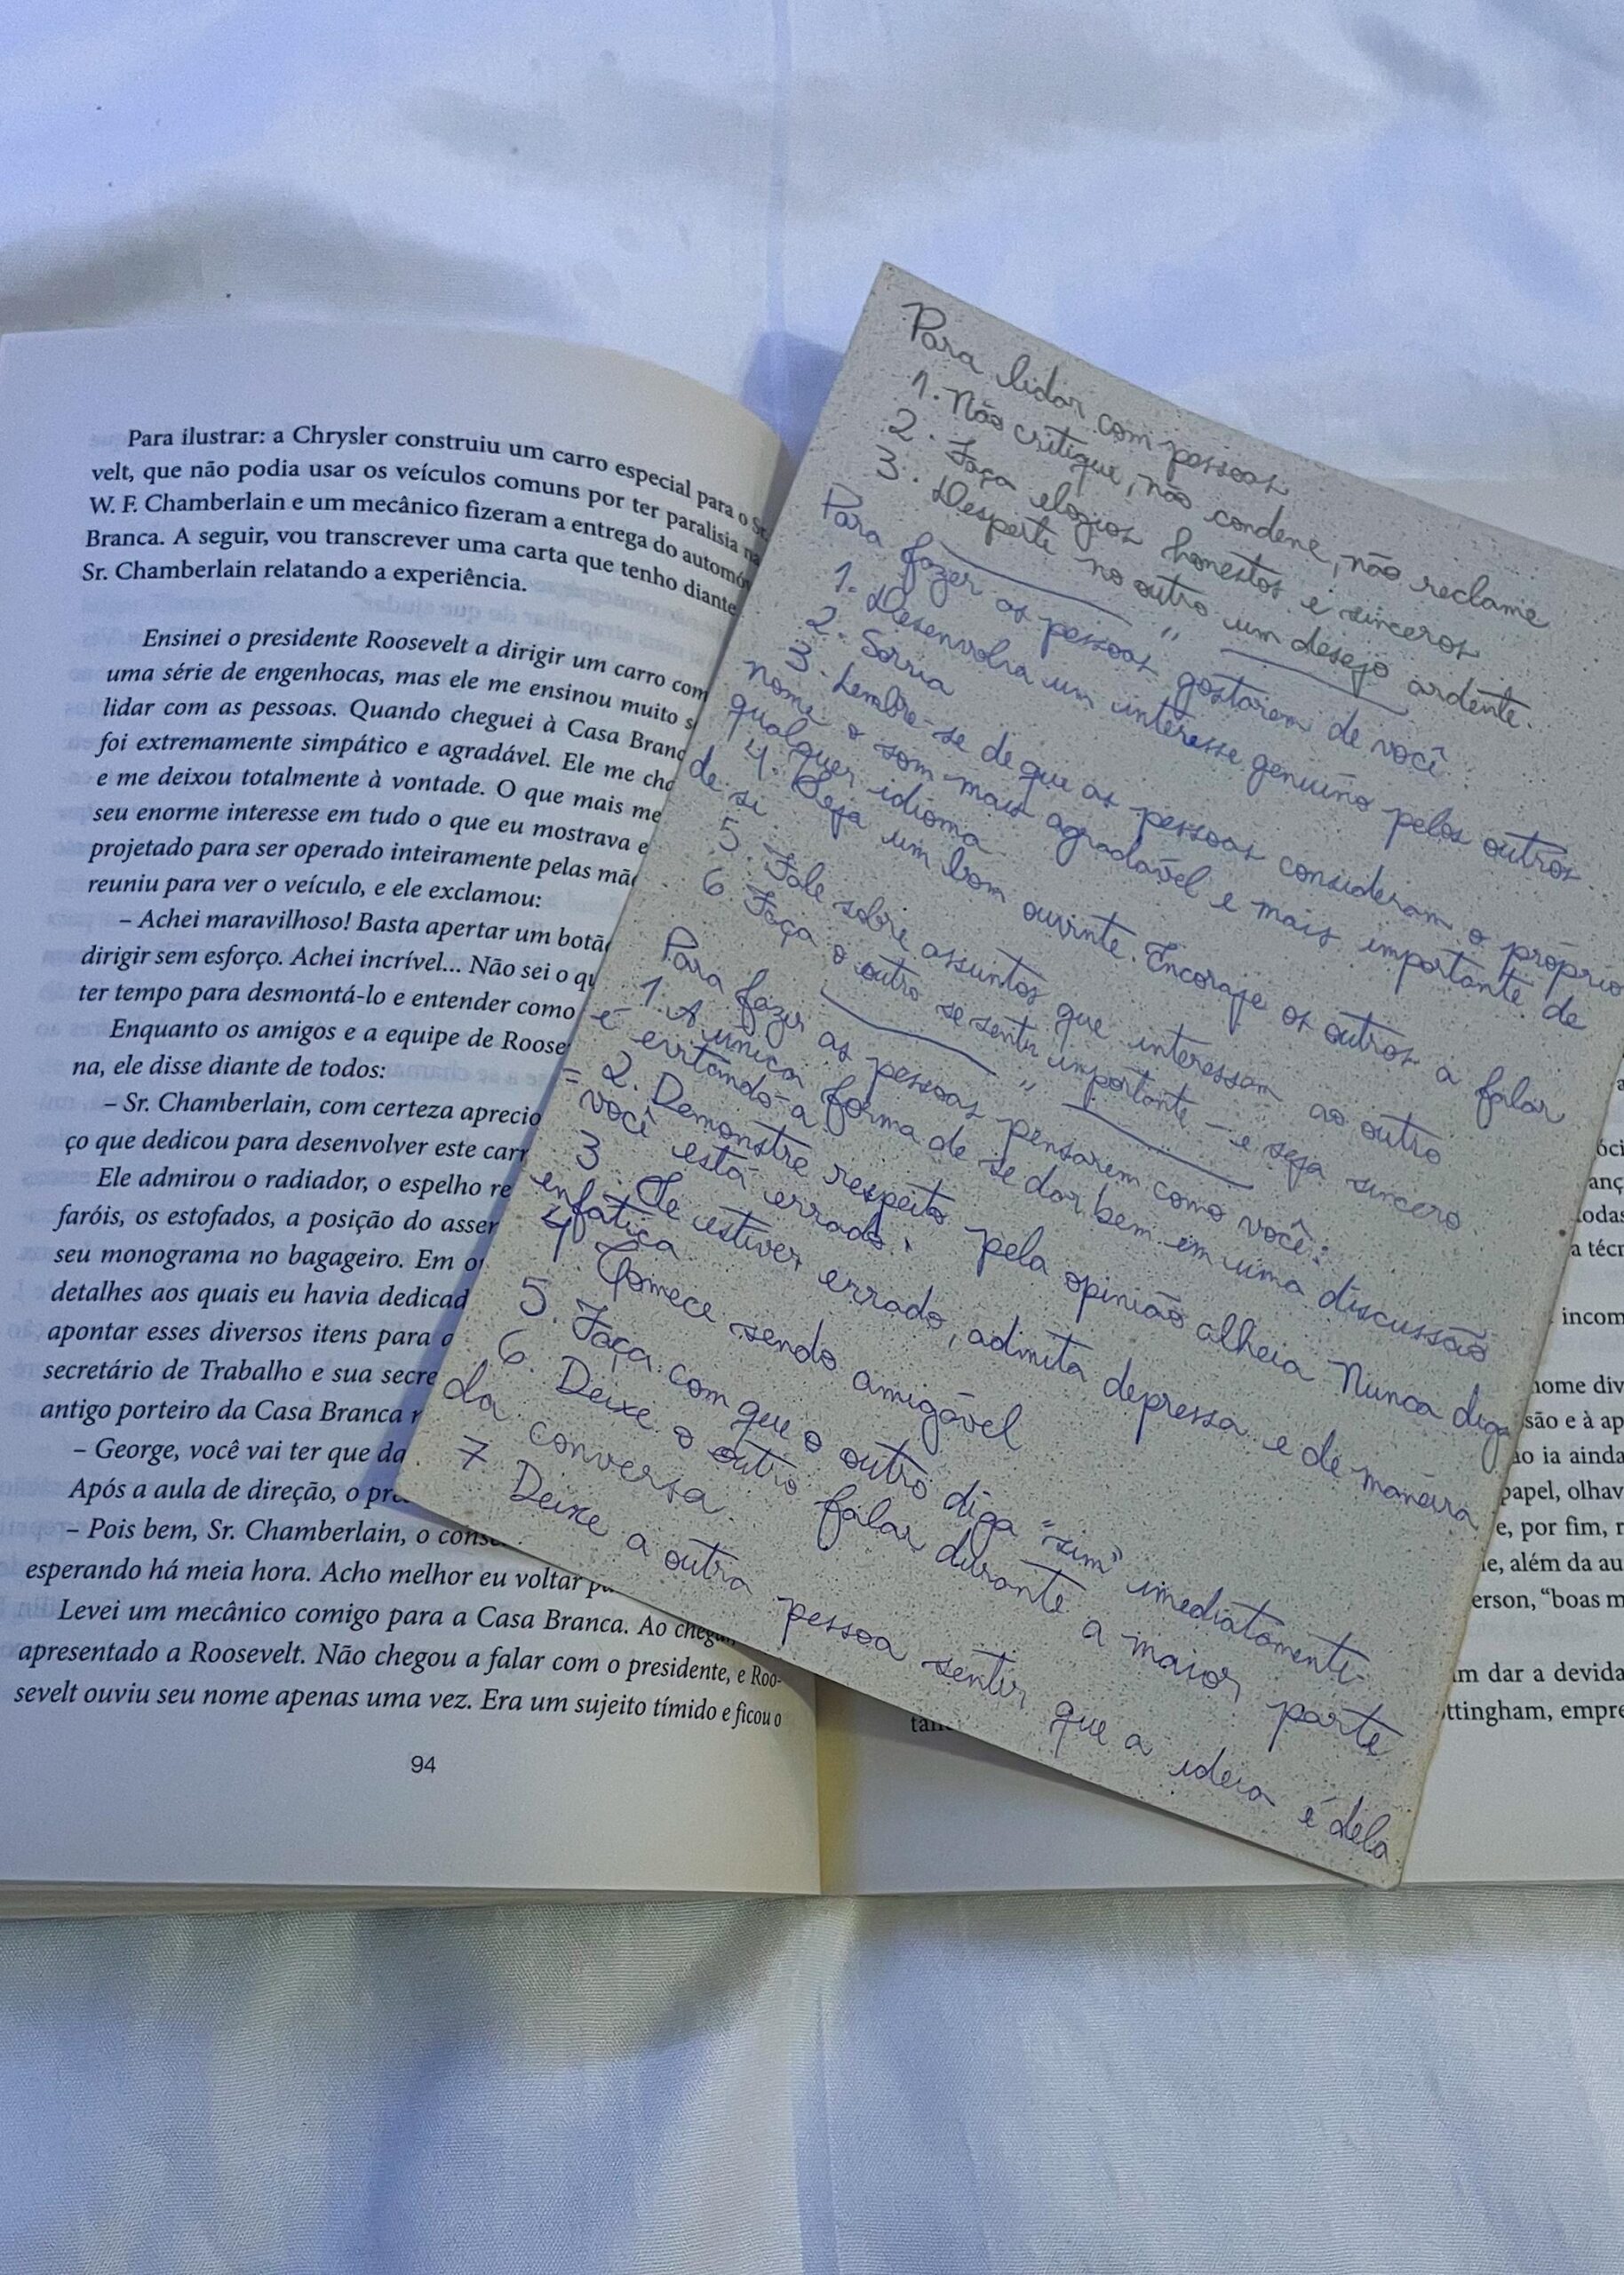 Para ilustrar: a Chrysler construiu um carro especial para o Sr.
velt, que não podia usar os veículos comuns por ter paralisia na
W. F. Chamberlain e um mecânico fizeram a entrega do automó
Branca. A seguir, vou transcrever uma carta que tenho diante
Sr. Chamberlain relatando a experiência.
Ensinei o presidente Roosevelt a dirigir um carro com
uma série de engenhocas, mas ele me ensinou muito s
lidar com as pessoas. Quando cheguei à Casa Branc
foi extremamente simpático e agradável. Ele me cha
e me deixou totalmente à vontade. O que mais me
seu enorme interesse em tudo o que eu mostrava e
projetado para ser operado inteiramente pelas mão
reuniu para ver o veículo, e ele exclamou:
– Achei maravilhoso! Basta apertar um botão
dirigir sem esforço. Achei incrível... Não sei o qu
ter tempo para desmontá-lo e entender como
Enquanto os amigos e a equipe de Roose
na, ele disse diante de todos:
– Sr. Chamberlain, com certeza aprecio
ço que dedicou para desenvolver este carr
Ele admirou o radiador, o espelho re
faróis, os estofados, a posição do asser
seu monograma no bagageiro. Em o
detalhes aos quais eu havia dedicad
apontar esses diversos itens para a
secretário de Trabalho e sua secre
antigo porteiro da Casa Branca
– George, você vai ter que da
Após a aula de direção, o pre
– Pois bem, Sr. Chamberlain, o conse
esperando há meia hora. Acho melhor eu voltar
Levei um mecânico comigo para a Casa Branca. Ao chegar
apresentado a Roosevelt. Não chegou a falar com o presidente, e Roo-
sevelt ouviu seu nome apenas uma vez. Era um sujeito tímido e ficou o
94
Para lidar com pessoas
1. Não critique, não condene, não reclame
2. Faça elogios honestos e sinceros
3. Desperte no outro um desejo ardente.
"
Para fazer as pessoas gostarem de você:
1. Desenvolva um interesse genuíno pelos outros.
2. Sorria
3. Lembre-se de que as pessoas consideram o próprio
nome o som mais agradável e mais importante de
qualquer idioma
4. Seja um bom ouvinte. Encoraje os outros a falar
de si
5. Fale sobre assuntos que interessam ao outro
6. Faça o outro se sentir importante – e seja sincero
"
Para fazer as pessoas pensarem como você:
1. A única forma de se dar bem em uma discussão
é evitando-a
2. Demonstre respeito pela opinião alheia Nunca diga
= você está errado.
3. Se estiver errado, admita depressa e de maneira
enfática
4 Comece sendo amigável
5. Faça com que o outro diga "sim" imediatamente
6. Deixe o outro falar durante a maior parte
da conversa.
7 Deixe a outra pessoa sentir que a ideia é dela
a técn
incom
nome div
são e à ap
ao ia ainda
papel, olhav
e, por fim, r
le, além da au
erson, "boas m
am dar a devida
ttingham, empre